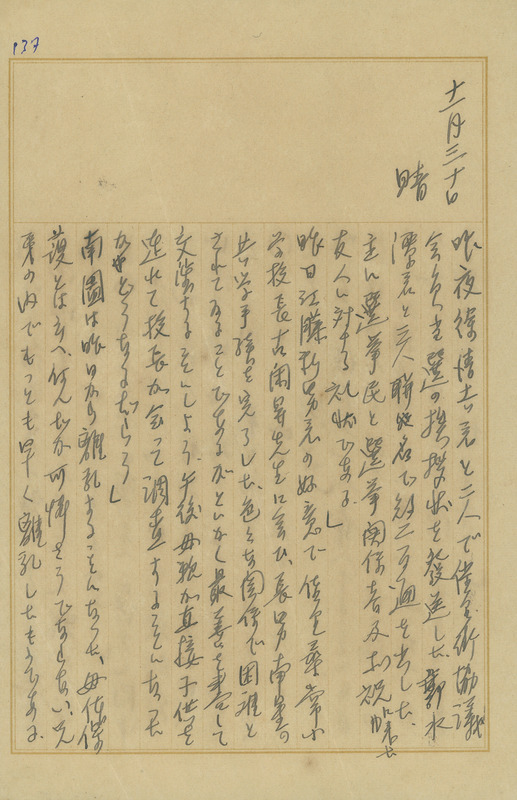 137
十一月三十日
晴
昨夜徐慶吉君と二人で佳里街協議
会員当選の挨拶状を発送した。郭水
潭君と三人聯名で約二百通を出した、
主に選挙民と選挙関係者及お祝
友人に対する礼状である。
昨日江藤新男君の好意で佳里尋常小
学校長古閑昇先生に会ひ、長男南星の
共学手続を完了した。色々な関係で困難と
されてゐることであるがとにかく最善を尽して
交渉することにしよう。午後母親が直接子供を
連れて校長が会って調査することになった
がどうあるだらう
南圖は昨日から離乳することになった、母体保
護とは云へ何んだか可憐さうでならない、兄
弟の内でもっとも早く離乳したもうである。